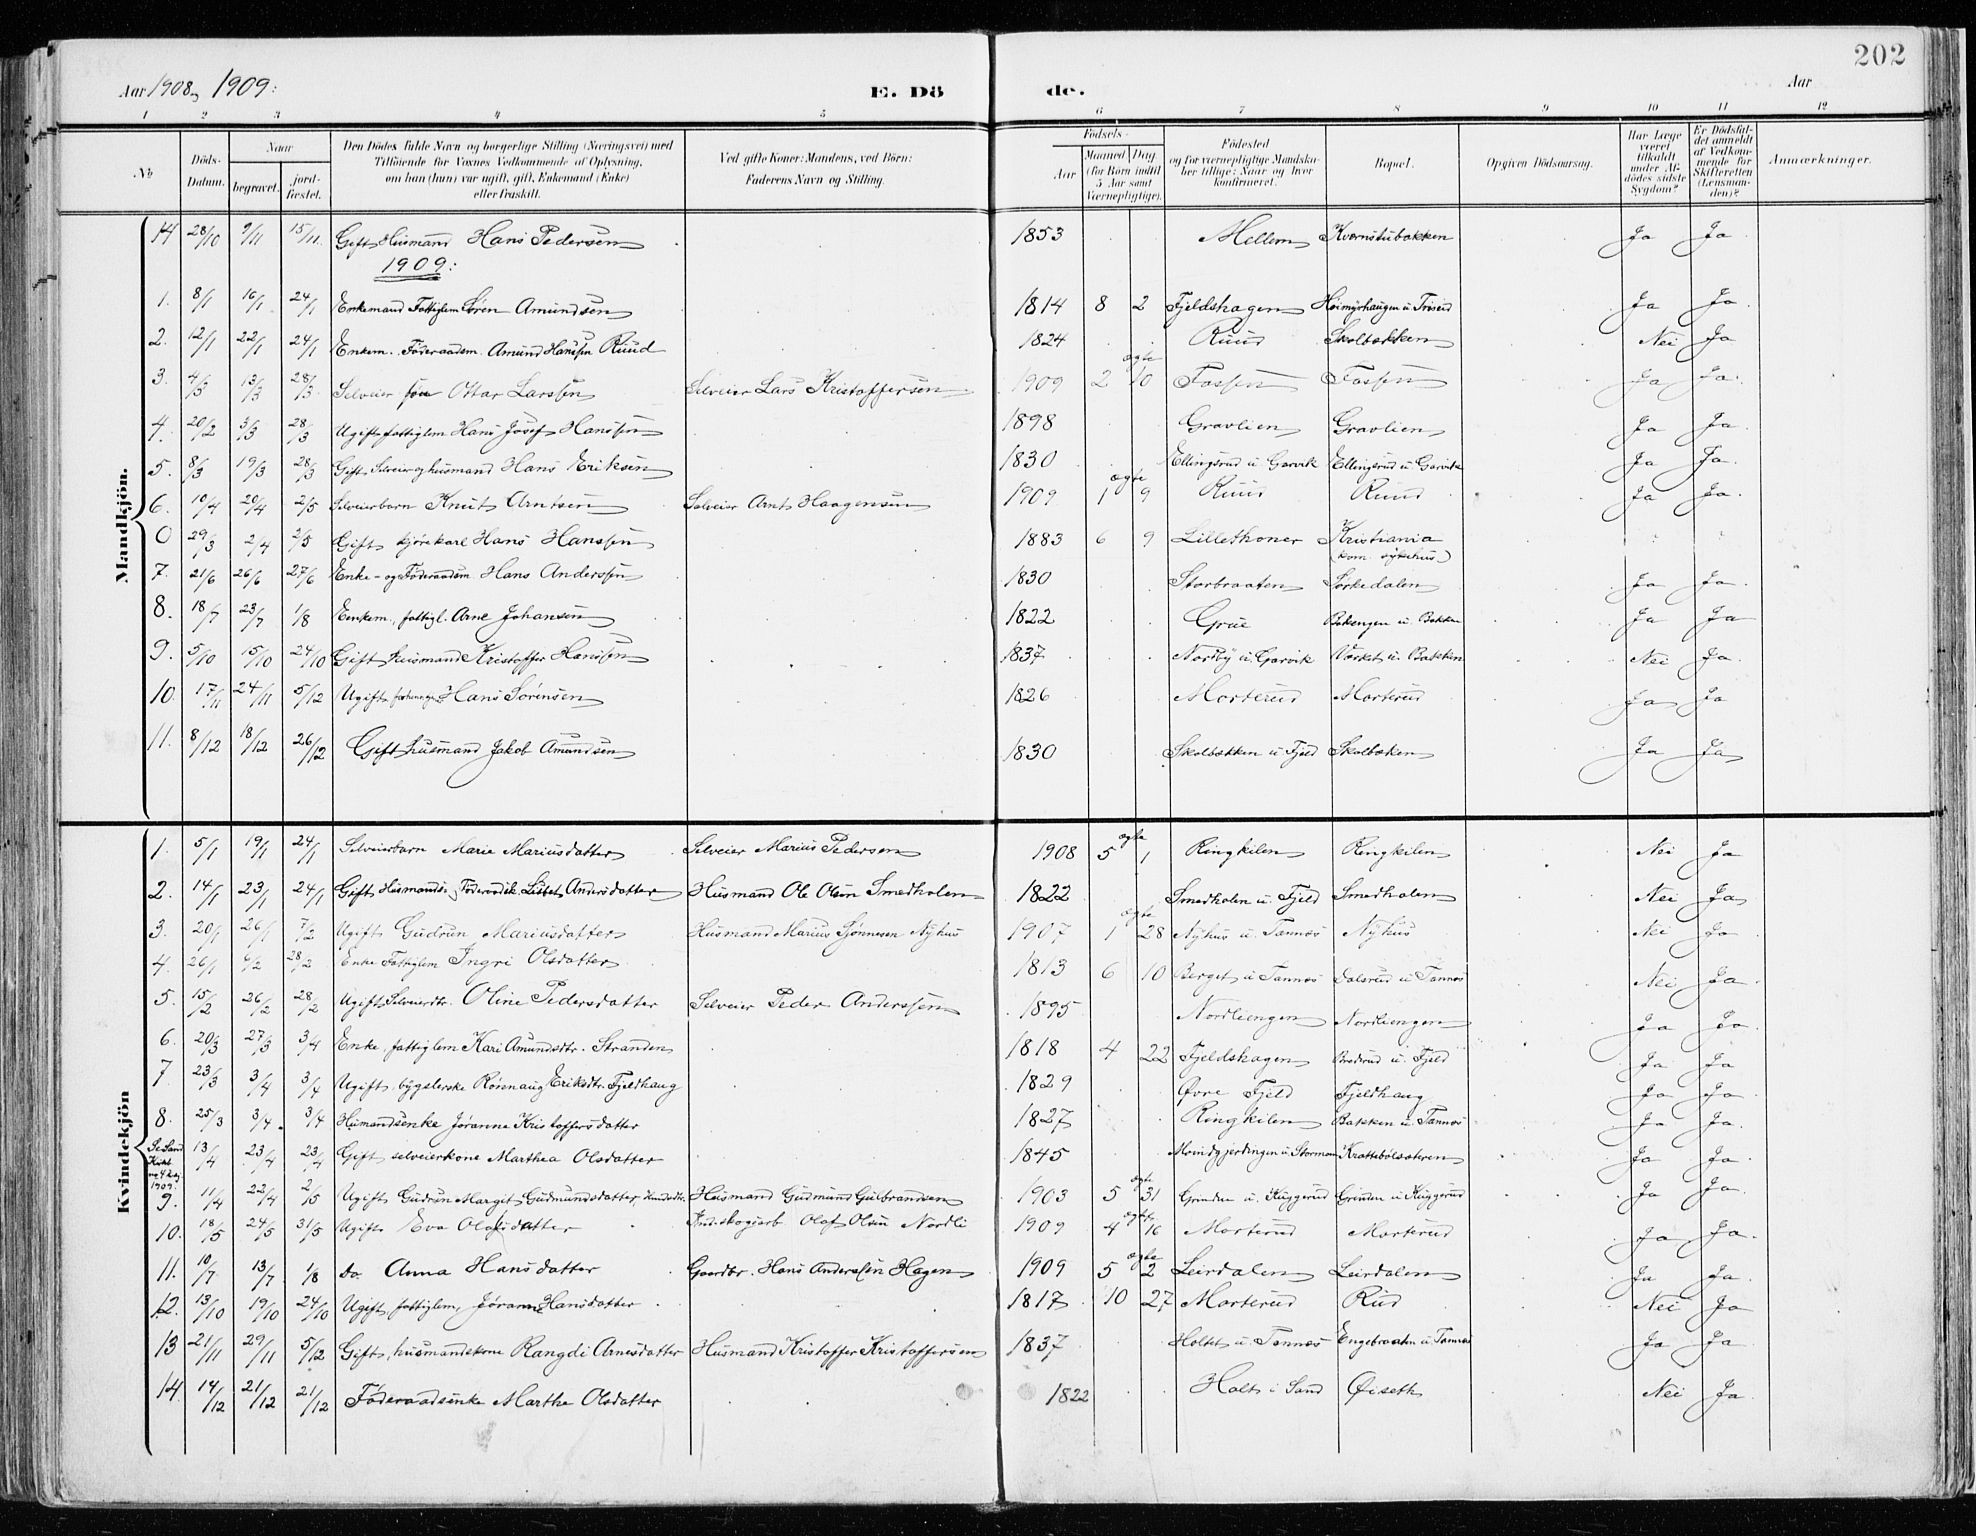 202
Aar 1908 og 1909: E. Dö de. Aar
1 2 3 4 5 6 7 8 9 10 11 12
No. Döds-Datum. Naar begravet. jord-fæstet. Den Dödes fulde Navn og borgerlige Stilling (Næringsvei) med Tilföiende for Voxnes Vedkommende af Oplysning, om han (hun) var ugift, gift, Enkemand (Enke) eller fraskilt. Ved gifte Koner: Mandens, ved Börn: Faderens Navn og Stilling. Födsels- Aar Maaned Dag (for Börn indtil 5 Aar samt Værnepligtige). Födested og for værnepligtige Mandskaber tillige: Naar og hvor konfirmeret. Bopæl. Opgiven Dödsaarsag. Har Læge været tilkaldt under Afdödes sidste Sygdom? Er Dödsfaldet anmeldt af Vedkommende for Skifteretten (Lensmanden)? Anmærkninger.
Mandkjön.
14 28/10 9/11 15/11 Gift Husmand Hans Pedersen 1853 Mellem Kvernstubakken Ja Ja
1909:
1. 8/1 16/1 24/1 Enkemand Fattiglem Søren Amundsen 1814 8 2 Fjeldshagen Høimyrhaugen u. Friserd Ja Ja
2. 12/1 22/1 24/1 Enkem. Føderaadsm. Amund Hanssen Ruud 1824 Ruud Skolbækken Nei Ja
3. 4/3 13/3 28/3 Selveier søn Ottar Larssen Selveier Lars Kristoffersen 1909 2 ægte 10 Fossen Fossen Ja Ja
4. 20/2 3/3 28/3 Ugift fattiglem Hans Josef Hanssen 1898 Gravlien Gravlien Ja Ja
5. 8/3 19/3 28/3 Gift Selveier og husmand Hans Eriksen 1830 Ellingsrud u. Garvik Ellingsrud u. Garvik Ja Ja
6. 10/4 20/4 2/5 Selveierbarn Knut Arntsen Selveier Arnt Haagensen 1909 1 ægte 9 Ruud Ruud Ja Ja
0 29/3 2/4 2/5 Gift kjørekarl Hans Hanssen 1883 6 9 Lillethoner Kristiania (kom. sykehus)
7. 21/6 26/6 27/6 Enke- og Føderaadsm Hans Anderssen 1830 Storbraaten Sørkedalen Ja Ja
8. 18/7 23/7 1/8 Enkem., fattigl. Arne Johansen 1822 Grue Bakengen u. Bakken Ja Ja
9. 5/10 15/10 24/10 Gift husmand Kristoffer Hanssen 1837 Nordby u. Garvik Værket u. Bakken Nei Ja
10. 17/11 24/11 5/12 Ugift Hans Sørensen 1826 Morterud Morterud Ja Ja
11. 8/12 18/12 26/12 Gift husmand Jakob Amundsen 1830 Skolbækken u Fjeld Skolbæken Ja Ja
Kvindekjön
1. 5/1 19/1 24/1 Selveierbarn Marie Mariusdatter Selveier Marius Pedersen 1908 5 ægte 1 Ringkilen Ringkilen Nei Ja
2. 14/1 23/1 24/1 Gift Husmands- Føderaadsk. Lisbet Andersdatter Husmand Ole Olsen Smedholen 1822 Smedholen u. Fjeld Smedholen Nei Ja
3. 20/1 26/1 7/2 Ugift Gudrun Mariusdatter Husmand Marius Sjønnesen Nyhus 1907 1 ægte 28 Nyhus u. Tannæs Nyhus Nei Ja
4. 26/1 6/2 28/2 Enke Fattiglem Ingri Olsdatter 1813 6 10 Berget u Tannæs Dalsrud u Tannæs Nei Ja
5. 15/2 26/2 28/2 Ugift Selveierdtr. Oline Pedersdatter Selveier Peder Anderssen 1895 Nordliengen Nordliengen Ja Ja
6. 20/3 27/3 3/4 Enke, fattiglem Kari Amundsdtr. Stranden 1818 4 22 Fjeldshagen Bredrud u. Fjeld Ja Ja
7 23/3 3/4 3/4 Ugift, bygslerske Rønnaug Eriksdtr. Fjeldhaug 1829 Øvre Fjeld Fjeldhaug Ja Ja
8. 25/3 3/4 3/4 Husmandsenke Jøranne Kristoffersdatter 1827 Ringkilen Bakken u. Tannæs Ja Ja
13/4 23/4 23/4 Gift selveierkone Marthea Olsdatter 1845 Krattebølsæteren Ja Ja
9. 11/4 22/4 2/5 Ugift Gudrun Margit Gudmundsdatter, Husmand Gudmund Gulbrandsen 1903 5 ægte 31 Grinden u. Kuggerud Grinden u Kuggerud Ja Ja
10. 18/5 24/5 31/5 Ugift Eva Olafsdatter Olaf Olsen Nordli 1909 4 ægte 16 Morterud Morterud Ja Ja
11. 10/7 13/7 1/8 Do. Anna Hansdatter Gaardbr. Hans Anderssen Hagen 1909 5 ægte 2 Leirdalen Leirdalen Ja Ja
12. 13/10 19/10 24/10 Ugift, fattiglem, Jøranne Hansdatter 1817 10 27 Morterud Rud Nei Ja
13 21/11 29/11 5/12 Gift, husmandskone Rangdi Arnesdatter Husmand Kristoffer Kristoffersen 1837 Holtet u. Tannæs Engebraaten u. Tannæs Ja Ja
14 14/12 21/12 21/12 Føderaadsenke Marthe Olsdatter 1822 Holt i Sand Øiseth Nei Ja